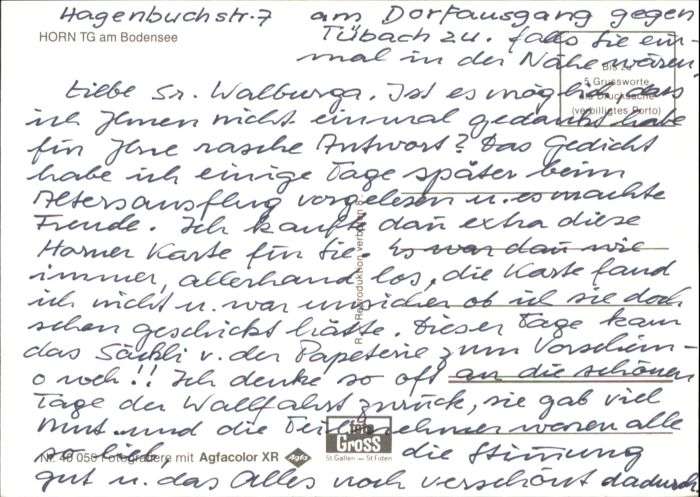 Hagenbuchstr. 7 am Dorfausgang gegen
HORN TG am Bodensee
Tübach zu. falls Sie ein-
mal in der Nähe wären
Bis zu
5 Grussworte
als Drucksache
(verbilligtes Porto)
Liebe Sr. Walburga. Ist es möglich, dass
ich Ihnen nicht einmal gedankt habe
für Ihre rasche Antwort? Das Gedicht
habe ich einige Tage später beim
Altersausflug vorgelesen u. es machte
Freude. Ich kaufte dañ extra diese
Horner Karte für Sie. Es war dañ wie
immer, allerhand los, die Karte fand
ich nicht u. war unsicher ob ich sie doch
schon geschickt hätte. Dieser Tage kam
das Säckli v. der Papeterie zum Vorschein
o weh!! Ich denke so oft an die schönen
Tage der Wallfahrt zurück, sie gab viel
Mut und die Teilnehmer waren alle
so lieb, die Stimmung
gut u. das Alles noch verschönt dadurch
Reproduktion verboten
foto
Gross
St. Gallen — St. Fiden
Nr. 40 050 Fotografiere mit Agfacolor XR Agfa